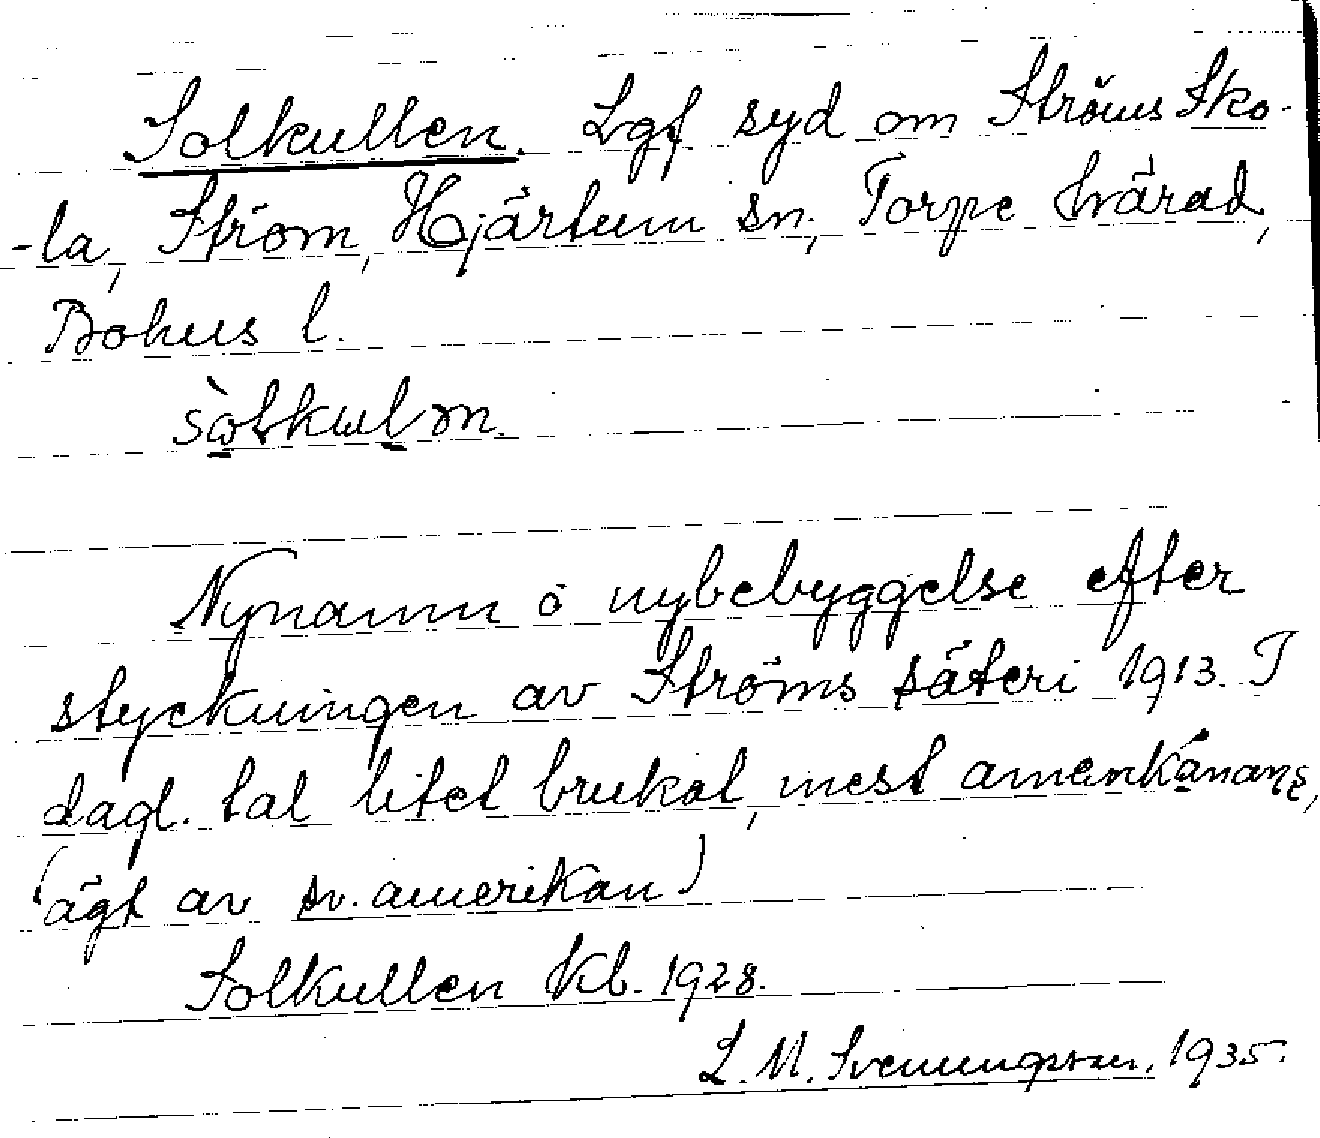 Solkullen. Lgf syd om Ströms Sko-
-la, Ström, Hjärtum sn, Torpe härad,
Bohus l.
sòlkulən.
Nynamn å nybebyggelse efter
styckningen av Ströms säteri 1913. I
dagl. tal litet brukat, mest amerikánans,
(ägt av sv. amerikan)
Solkullen Kb. 1928.
L. M. Svenungsson. 1935.